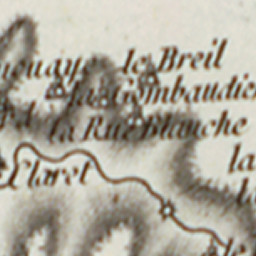 le Breil
la Gombaudie
la Rue Blanche
la
Claret
la
le